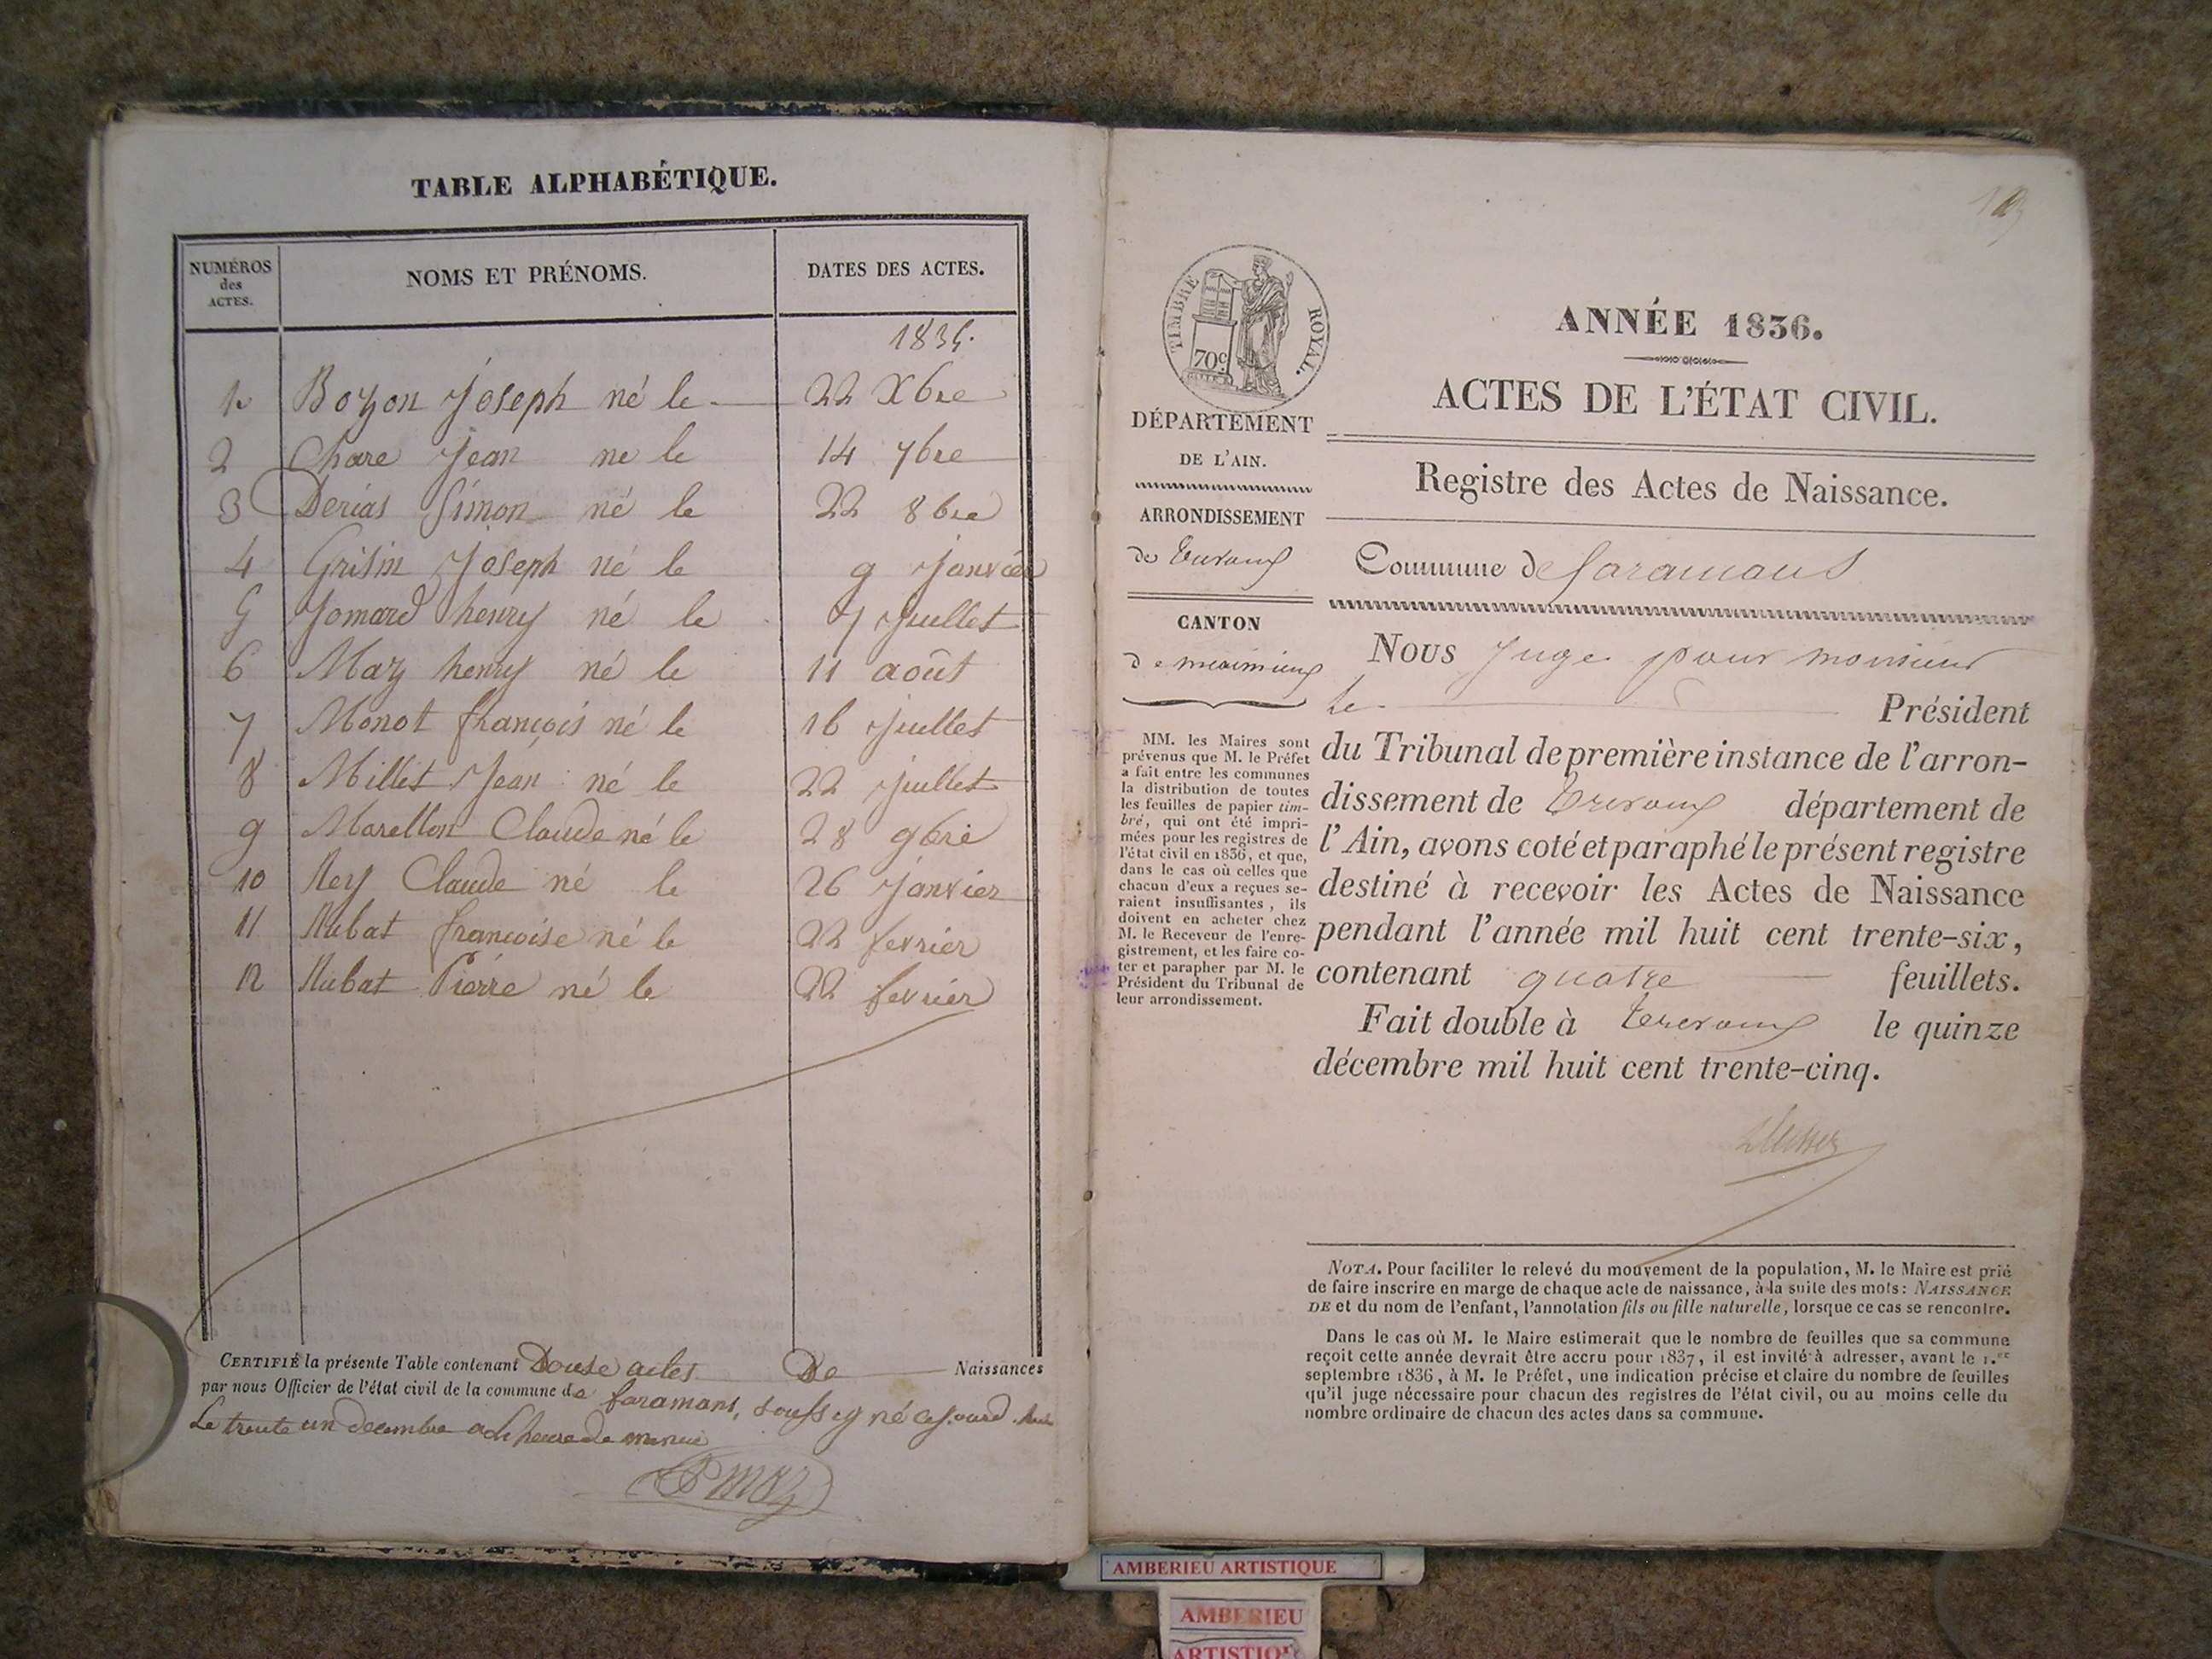 TABLE ALPHABÉTIQUE.
NUMÉROS
des
ACTES.
NOMS ET PRÉNOMS.
DATES DES ACTES.
1835.
1 Bozon Joseph né le 22 Xbre
2 Chare Jean ne le 14 7bre
3 Derias Simon né le 22 8bre
4 Grisin Joseph né le 9 Janvier
5 Jomard henry né le 7 Juillet
6 Maz henry né le 11 août
7 Monot françois né le 16 Juillet
8 Millet Jean né le 22 Juillet
9 Morellon Claude né le 28 9bre
10 Rey Claude né le 26 Janvier
11 Rubat francoise né le 22 fevrier
12 Rubat Pierre né le 22 fevrier
CERTIFIÉ la présente Table contenant Douse actes De Naissances
par nous Officier de l'état civil de la commune de faramans, soussigné
Le trente un decembre
TIMBRE ROYAL.
70c
DÉPARTEMENT
DE L'AIN.
ARRONDISSEMENT
de Trevoux
CANTON
de meximieux
MM. les Maires sont
prévenus que M. le Préfet
a fait entre les communes
la distribution de toutes
les feuilles de papier tim-
bré, qui ont été impri-
mées pour les registres de
l'état civil en 1836, et que,
dans le cas où celles que
chacun d'eux a reçues se-
raient insuffisantes, ils
doivent en acheter chez
M. le Receveur de l'enre-
gistrement, et les faire co-
ter et parapher par M. le
Président du Tribunal de
leur arrondissement.
ANNÉE 1836.
ACTES DE L'ÉTAT CIVIL.
Registre des Actes de Naissance.
Commune de faramans
Nous Juge pour monsieur
le Président
du Tribunal de première instance de l'arron-
dissement de Trevoux département de
l'Ain, avons coté et paraphé le présent registre
destiné à recevoir les Actes de Naissance
pendant l'année mil huit cent trente-six,
contenant quatre feuillets.
Fait double à Trevoux le quinze
décembre mil huit cent trente-cinq.
NOTA. Pour faciliter le relevé du mouvement de la population, M. le Maire est prié
de faire inscrire en marge de chaque acte de naissance, à la suite des mots: NAISSANCE
DE et du nom de l'enfant, l'annotation fils ou fille naturelle, lorsque ce cas se rencontre.
Dans le cas où M. le Maire estimerait que le nombre de feuilles que sa commune
reçoit cette année devrait être accru pour 1837, il est invité à adresser, avant le 1.er
septembre 1836, à M. le Préfet, une indication précise et claire du nombre de feuilles
qu'il juge nécessaire pour chacun des registres de l'état civil, ou au moins celle du
nombre ordinaire de chacun des actes dans sa commune.
AMBERIEU ARTISTIQUE
AMBERIEU
ARTISTIQUE